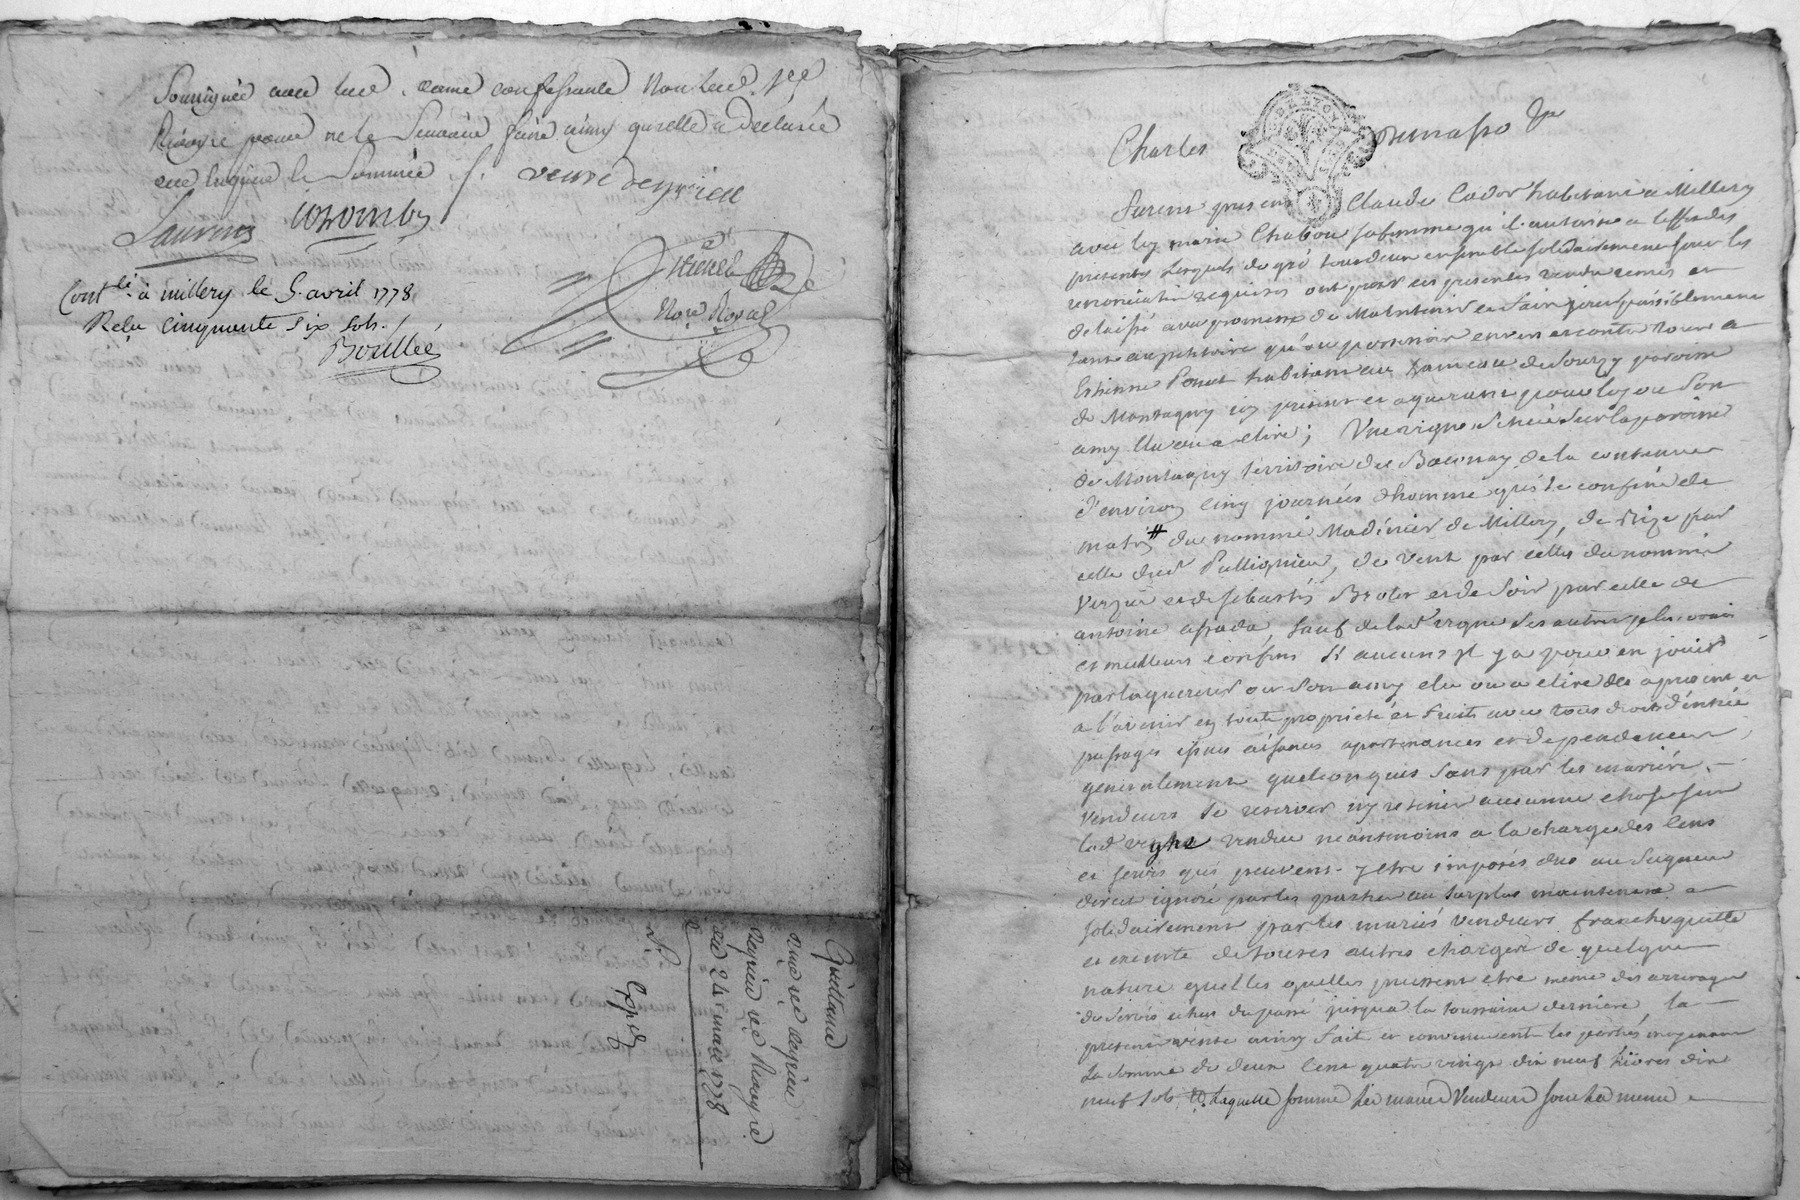 Soussignée avec led. dame confessante non led. Sr
Reigné pour ne le Scavoir faire ainsy quelle a declaré
de enquise & Sommée /. veuve deyrieu
Laurens Colomby
Nore Royal
Contlé à millery le 5. avril 1778.
Relu Cinquante Six Sols./.
Boullée
Quittance
24e mars 1778
Expdé
Charles
Furent presens Claude Cador habitant a Millery
avec luy marie Chabou sa femme qu'il autorise a l'effet des
presentes lesquels de gré tous deux ensemble solidairement sous les
renonciations requises ont par ces presentes vendu remis et
delaissé avec promesse de Maintenir et faire jouir paisiblement
tant au petitoire qu'au possessoire envers et contre tous a
Estienne Ponet habitant au hameau de Sourzy paroisse
de Montagny icy present et aquerant pour luy ou son
amy elu ou a elire ; Une vigne Scituée Sur la paroisse
de Montagny térritoire du Baconay de la contenue
d'environ cinq journées d'homme qui se confine de
matin du nommé Madinier de Millery, de Bize par
celle dud Pullignieu, de vent par celles du nommé
Verzié et de sebastien Broter et de Soir par celle de
antoine assada, Sauf de lad vigne Ses autres plus vrais
et meilleurs confins Si aucuns Il y a pour en jouir
par laquereur ou Son amy elu ou a elire des a present et
a l'avenir en toute proprieté et fruits avec tous droits d'entrée
passages issues aisances apartenances et dependances
generalement quelconques Sans par les mariés
vendeurs Se reserver ny retenir aucunne chose sur
lad vigne vendue neantmoins a la charge des Cens
et servis qui peuvent y etre imposés dus au Seigneur
direct ignoré par les parties au Surplus maintenue
solidairement par les mariés vendeurs franche quitte
et exempte de toutes autres charges de quelque
nature quelles quelles puissent etre meme des arrerages
de servis echus du passé jusqua la toussaint derniere la
presente vente ainsy fait et convenu entre les parties moyennant
la Somme de deux Cent quatre vingt dix neuf livres dix
neuf sols Laquelle somme les mariés Vendeurs sous la meme